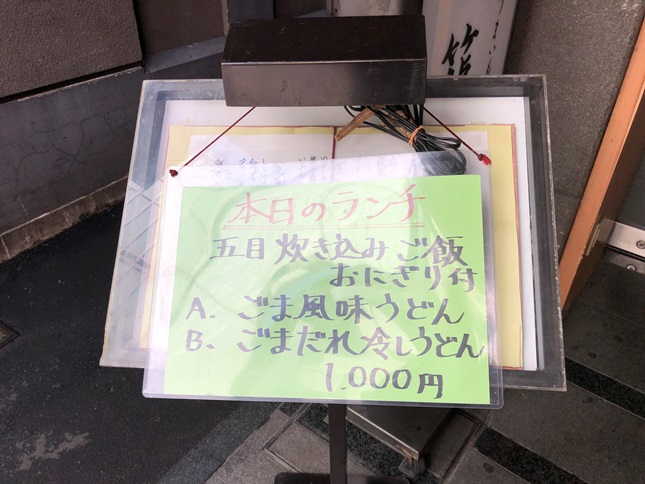 本日のランチ
五目炊き込みご飯
おにぎり付
A. ごま風味うどん
B. ごまだれ冷しうどん
1,000円